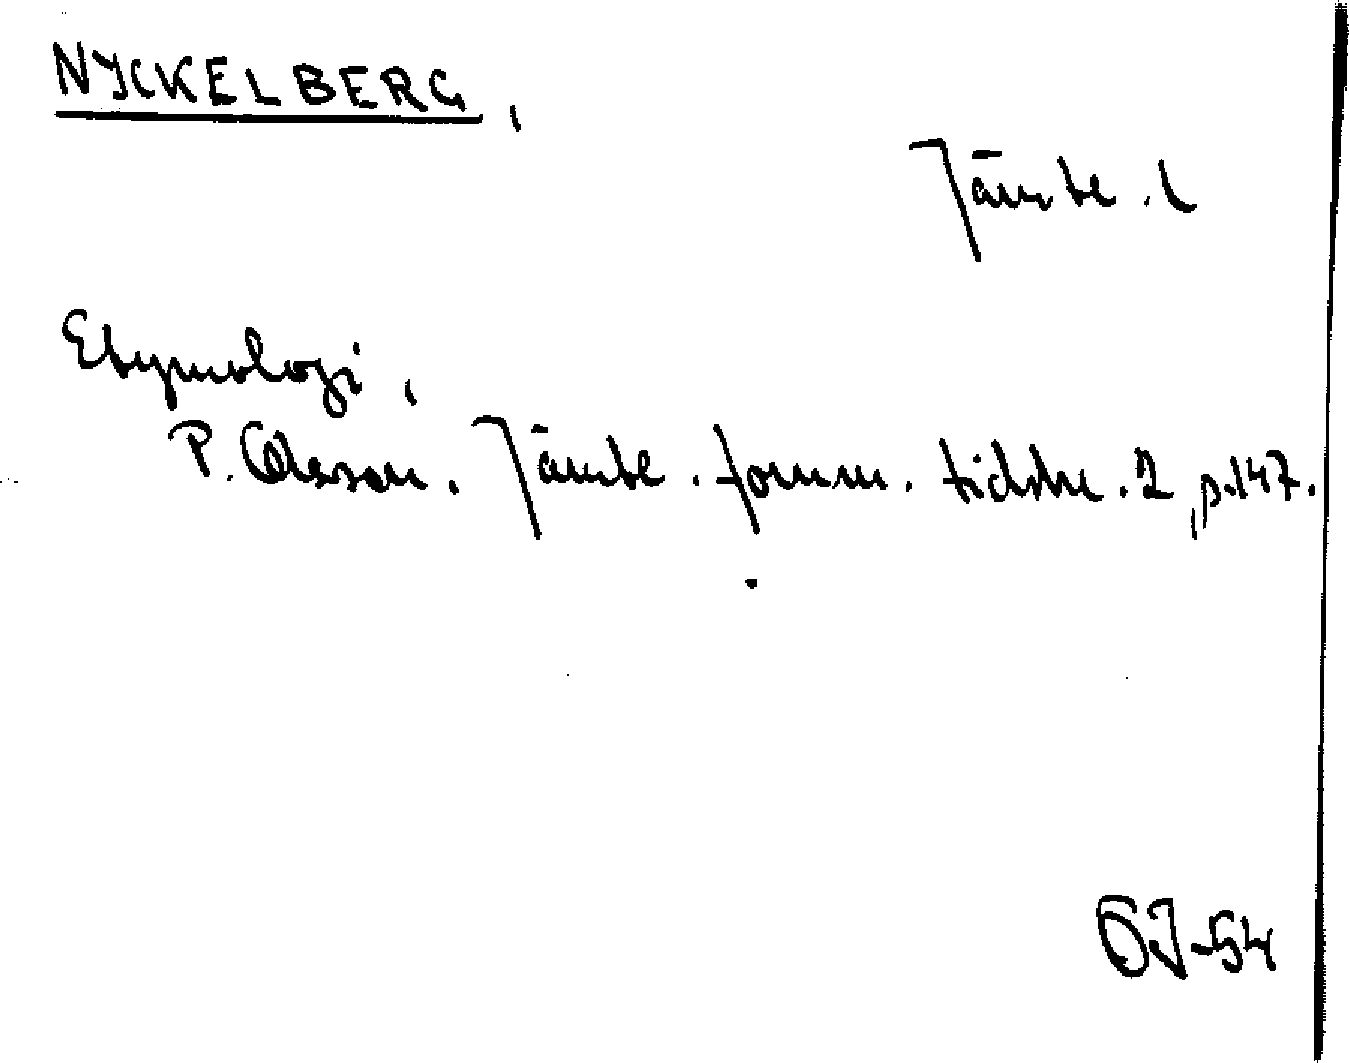 NYCKELBERG,
Jämtl. l
Etymologi,
P. Olsson. Jämtl. fornm. tidskr. 2, p. 147.
ÖJ-54